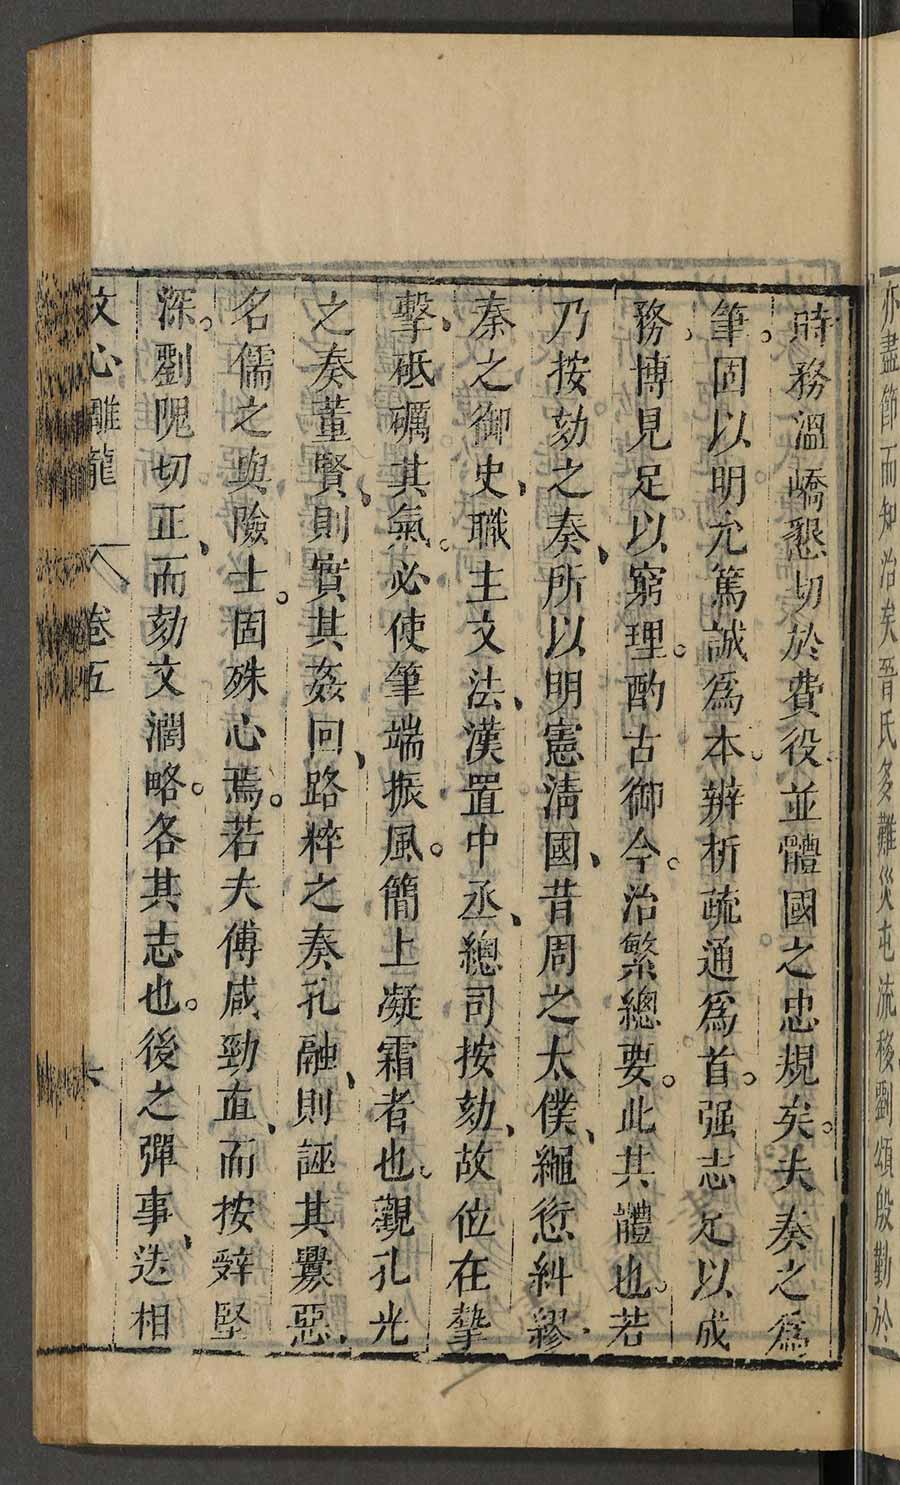 亦盡節而知治矣晉氏多難災屯流移劉頌殷勤於
時務溫嶠懇切於費役、並體國之忠規矣。夫奏之爲
筆。固以明允篤誠爲本、辨析疏通爲首。强志足以成
務、博見足以窮理。酌古御今。治繁總要。此其體也。若
乃按劾之奏、所以明憲淸國、昔周之太僕、繩愆糾繆、
秦之御史、職主文法、漢置中丞、總司按劾、故位在摯
擊、砥礪其氣。必使筆端振風。簡上凝霜者也。觀孔光
之奏董賢、則實其姦回、路粹之奏孔融、則誣其釁惡、
名儒之與險士。固殊心焉。若夫傅咸勁直、而按辭堅
深。劉隗切正、而劾文濶略。各其志也。後之彈事、迭相
文心雕龍 卷五 六